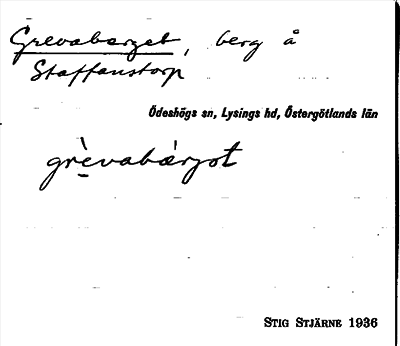 Grevaberget, berg å
Staffanstorp
Ödeshögs sn, Lysings hd, Östergötlands län
grè̱vabárjət
STIG STJÄRNE 1936